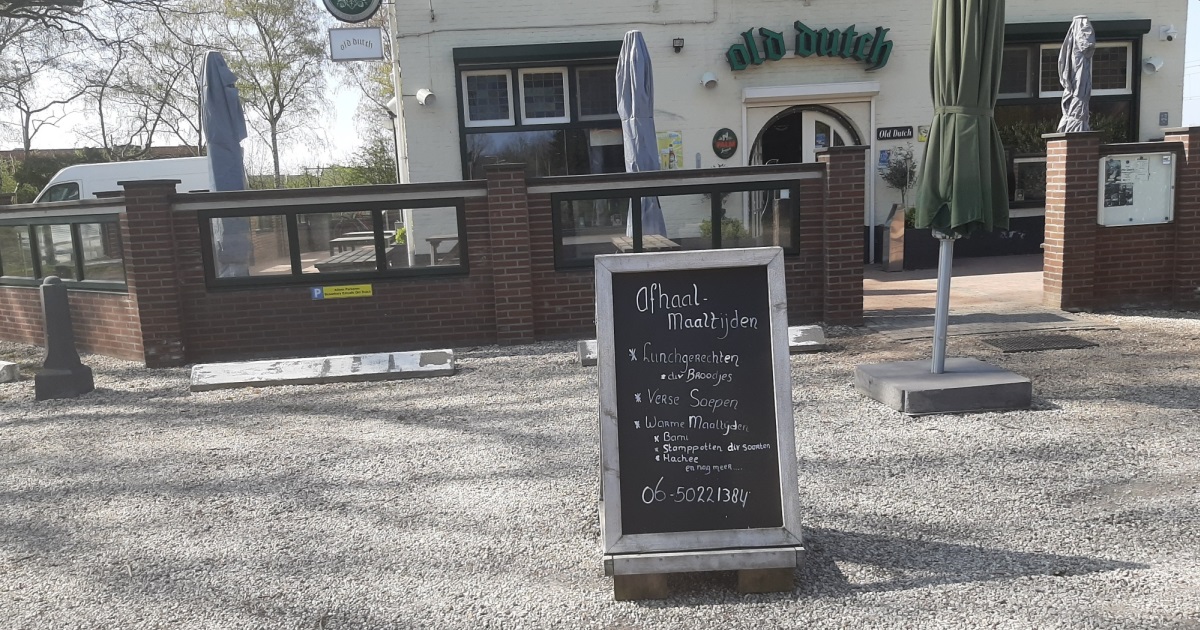 old dutch
old dutch
Old Dutch
P
Afhaal-
Maaltijden
* Lunchgerechten
* div Broodjes
* Verse Soepen
* Warme Maaltijden
* Bami
* Stamppotten div soorten
* Hachee
en nog meer....
06-50221384